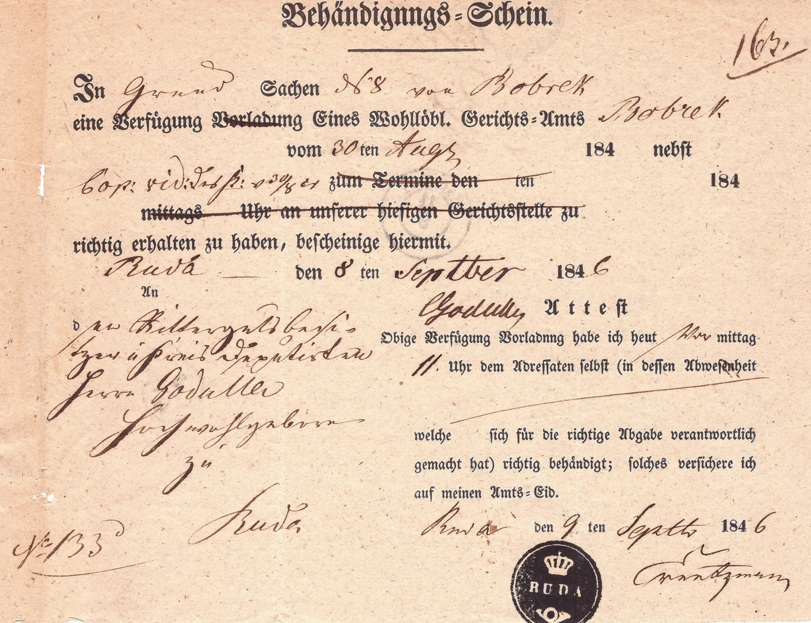 Behändignngs-Schein.
163.
In Grund Sachen No 8 von Bobrek
eine Verfügung Vorladung Eines Wohllöbl. Gerichts-Amts Bobrek
vom 30 ten Aug 184 nebst
Cop: zum Termine den ten 184
mittags Uhr an unserer hiesigen Gerichtsstelle zu
richtig erhalten zu haben, bescheinige hiermit.
Ruda den 8 ten Septber 1846
Godulla
An
den Rittergutsbesi-
tzer u Kreis Deputirten
Herrn Godulla
Hochwohlgeboren
zu
Ruda
No 133
Attest
Obige Verfügung Vorladnng habe ich heut Vor mittag
11. Uhr dem Adressaten selbst (in dessen Abwesenheit
welche sich für die richtige Abgabe verantwortlich
gemacht hat) richtig behändigt; solches versichere ich
auf meinen Amts-Eid.
Ruda den 9 ten Septbr 1846
RUDA